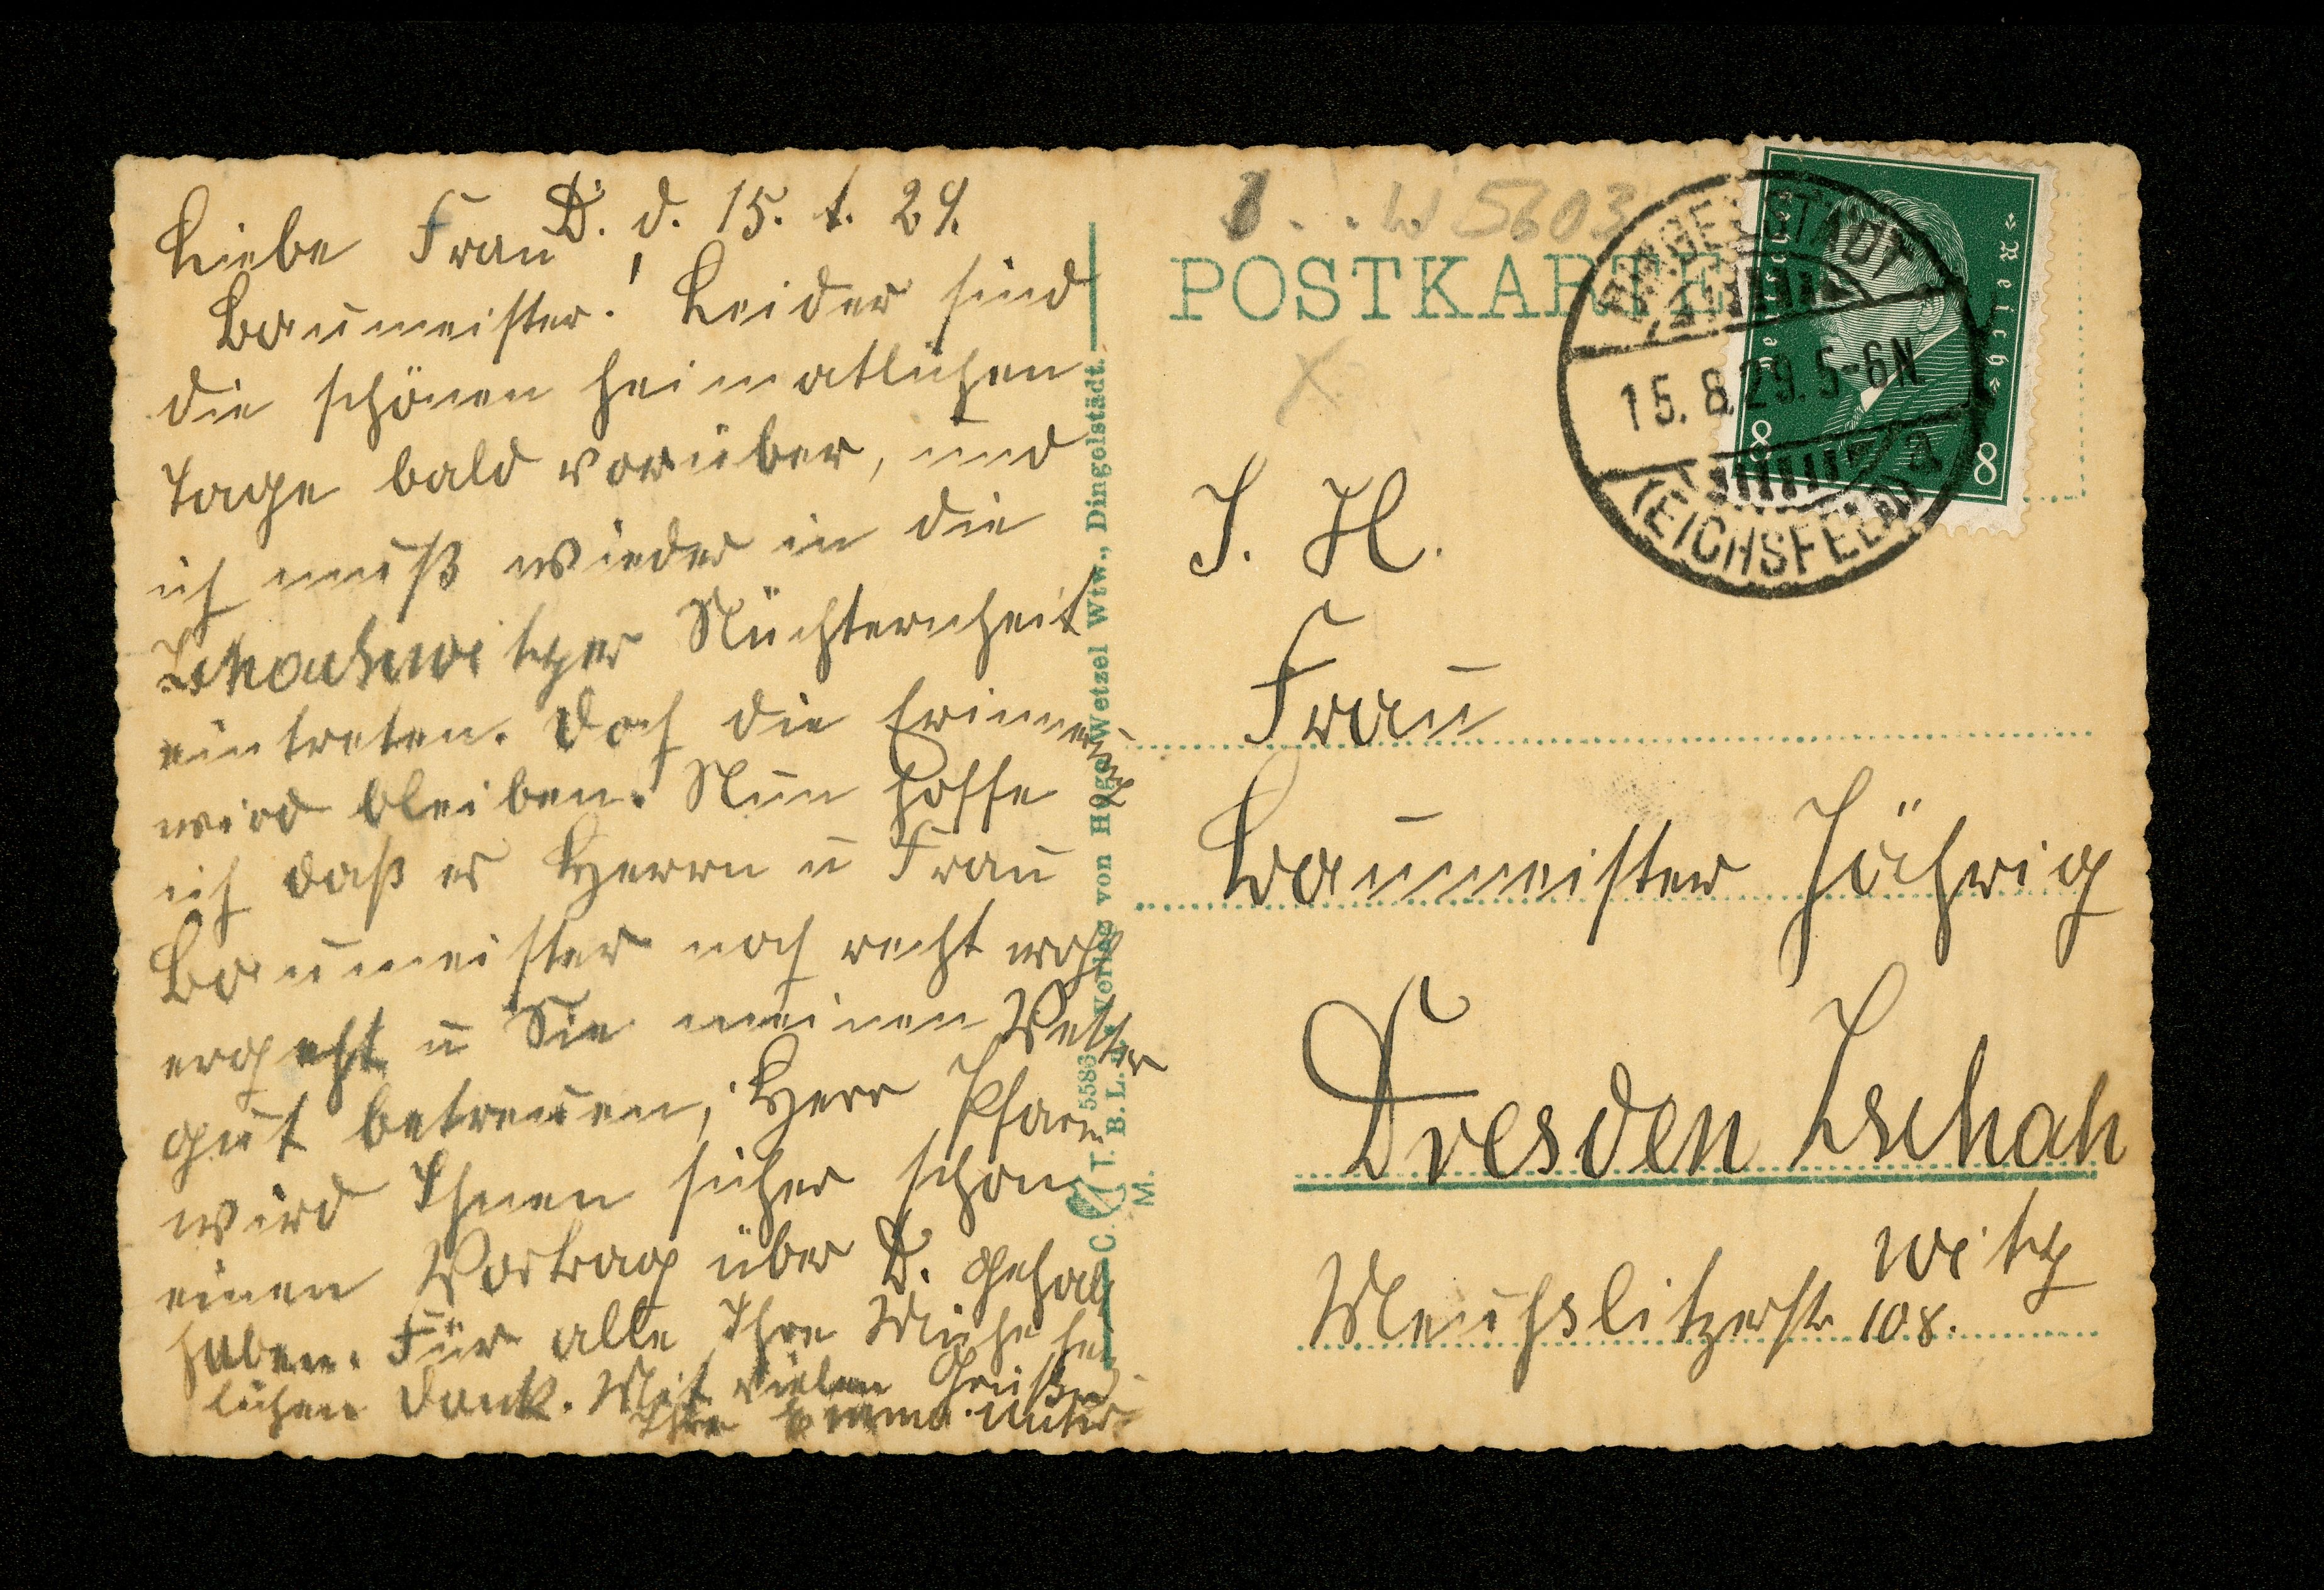 D. d. 15. 8. 29.
Liebe Frau
Baumeister! Leider sind
die schönen heimatlichen
Tage bald vorüber, und
ich muß wieder in die
Zschachwitzer Nüchternheit
eintreten. Doch die Erinnerung
wird bleiben. Nun hoffe
ich daß es Herrn u Frau
Baumeister noch recht wohl
ergeht u Sie meinen Vetter
gut betreuen; Herr Pfarrer
wird Ihnen sicher schon
einen Vortrag über D. gehal
haben. Für alle Ihre Mühe herz
lichen Dank. Mit vielen Grüßen
Ihre Emma
C. T. 5586
B. L.
M.
Verlag von Hugo Wetzel Wtw., Dingelstädt.
W 5603
POSTKARTE
X
DINGELSTÄDT
15.8.29.5-6N
a
(EICHSFELD)
Deutsches
Reich
8 8
I. H.
Frau
Baumeister Jährig
Dresden Zschach
witz
Meußlitzerstr. 108.